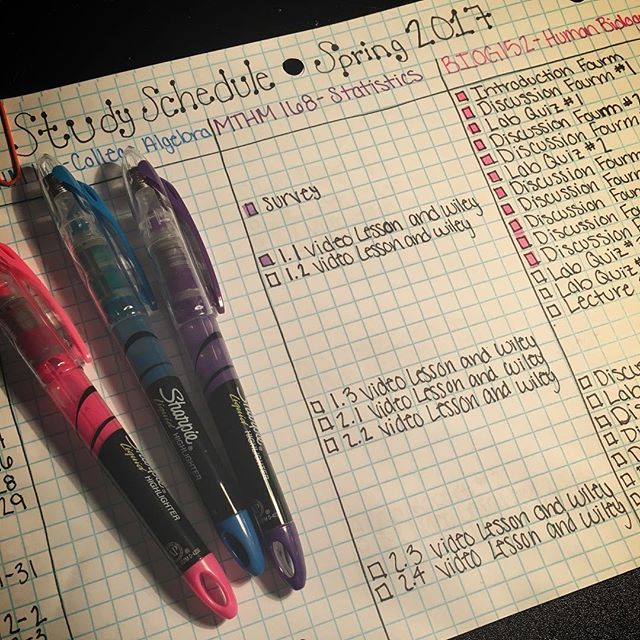 Study Schedule • Spring 2017
College Algebra
MTHM 168- Statistics
BIO6152-Human Biolog
survey
1.1 video Lesson and wiley
1.2 video Lesson and wiley
1.3 video Lesson and wiley
2.1 video Lesson and wiley
2.2 video Lesson and wiley
2.3 video Lesson and wiley
2.4 video Lesson and wiley
Introduction Fourm
Discussion Fourm #1
Lab Quiz #1
Discussion Fourm
Discussion Fourm
Lab Quiz #2
Discussion Fourm
Discussion Fourm
Discussion Fourm
Discussion
Discussion
Lab Quiz #
Lab Quiz #
Lecture
Discu
Lab
Di
Sharpie
Liquid HIGHLIGHTER
Liquid HIGHLIGHTER
29
1-31
2-2